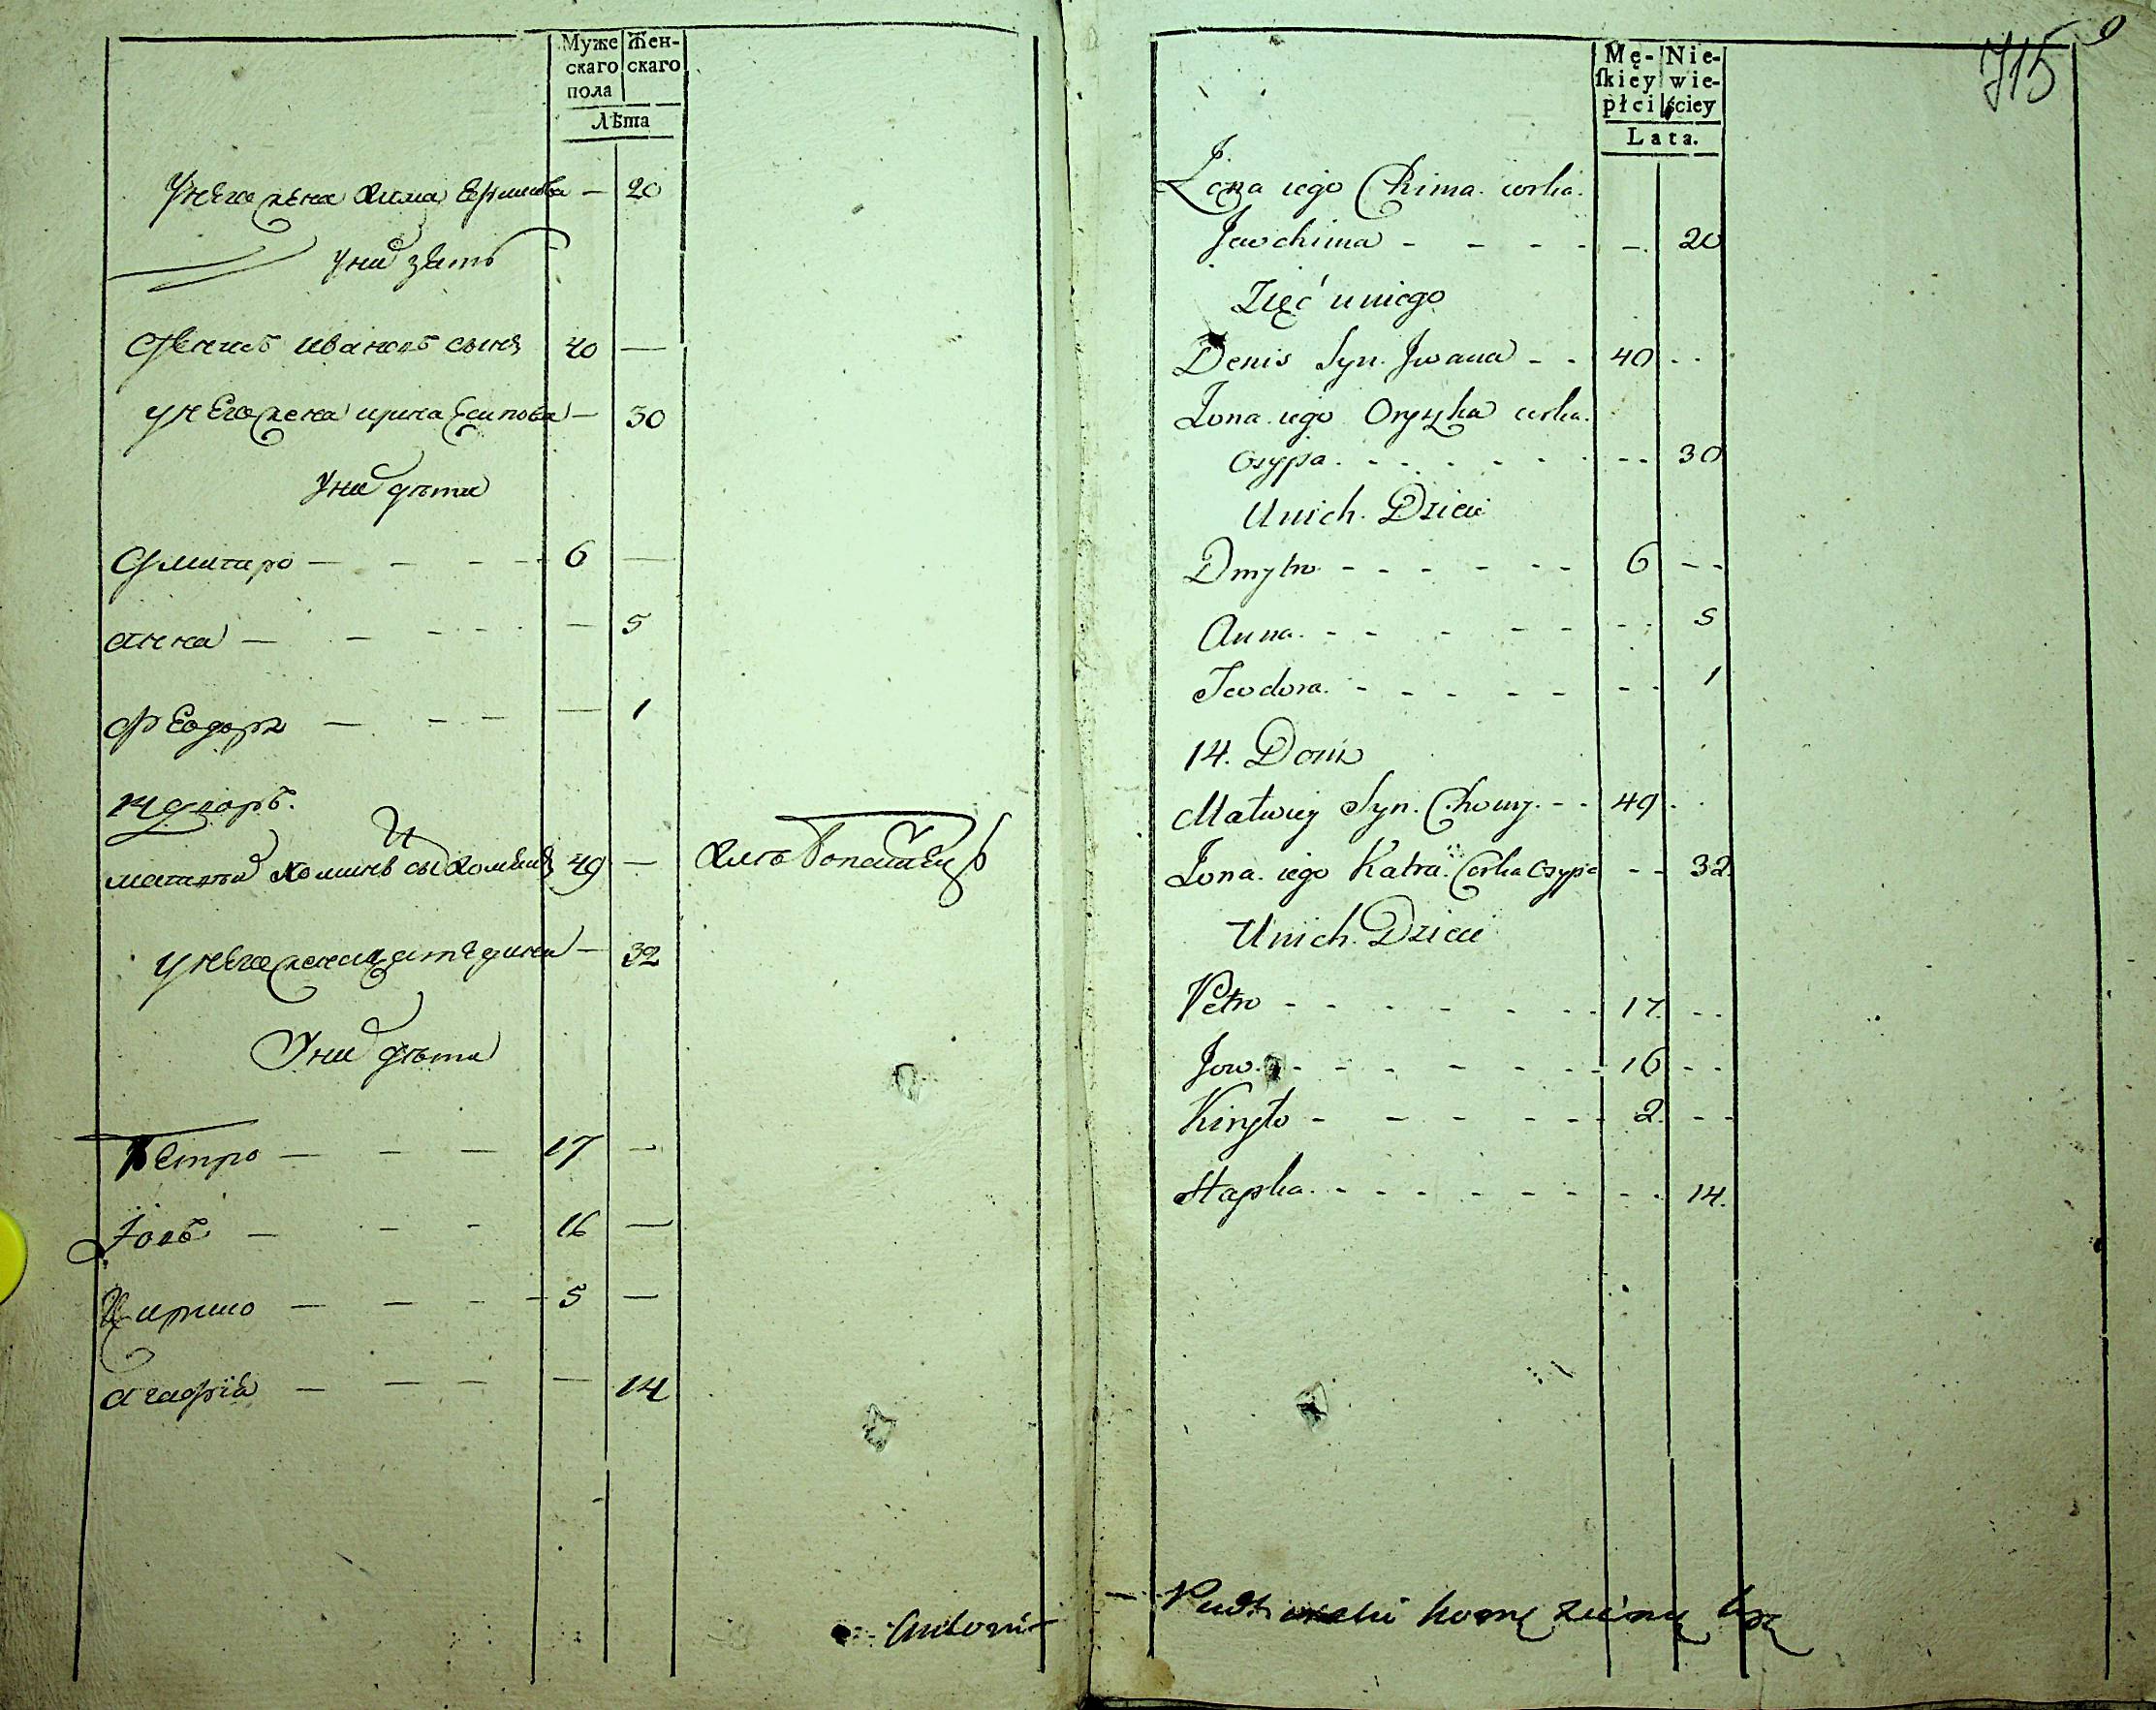 Муже Жен-
скаго скаго
пола
Лѣта
У него жена Хима Ефимова — 20
У ни зять
Денисъ Ивановъ сынъ 40 —
У него жена Ирина Есипова — 30
У ни дѣти
Дмитро — — — 6 —
Анна — — — — 5
Феодора — — — — 1
14 дворъ.
Матвей 49 —
У него жена — 32
У ни дѣти
Петро — — — 17 —
Іовъ — — — 16 —
Кирило — — — 5 —
Агафія — — — — 14
Antoni
715
Mę- Nie-
ſkiey wie-
płci ściey
Lata.
Żona iego Chima corka.
Jewchima - - - - - 20
Zięć u niego
Denis Syn Jwana - - 40 - -
Żona iego Oryszka corka.
Osypa. - - - - - - - - 30
U nich Dzieci
Dmytro - - - - - - 6 - -
Anna. - - - - - - - 5
Teodora. - - - - - - - 1
14. Dom
Matwiy Syn Chomy. - - 49. - -
Żona iego Katra. Corka Osypa - - 32.
U nich Dzieci
Petro - - - - - - - 17. - -
Jow. - - - - - - - 16 - -
Kiryło - - - - - - 2. - -
Hapka. - - - - - - - - 14.